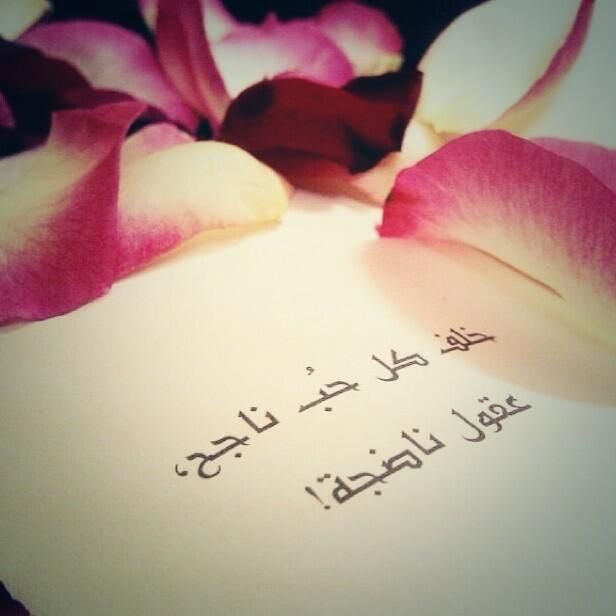 خلف كل حبُ ناجح،
عقول ناضجة!